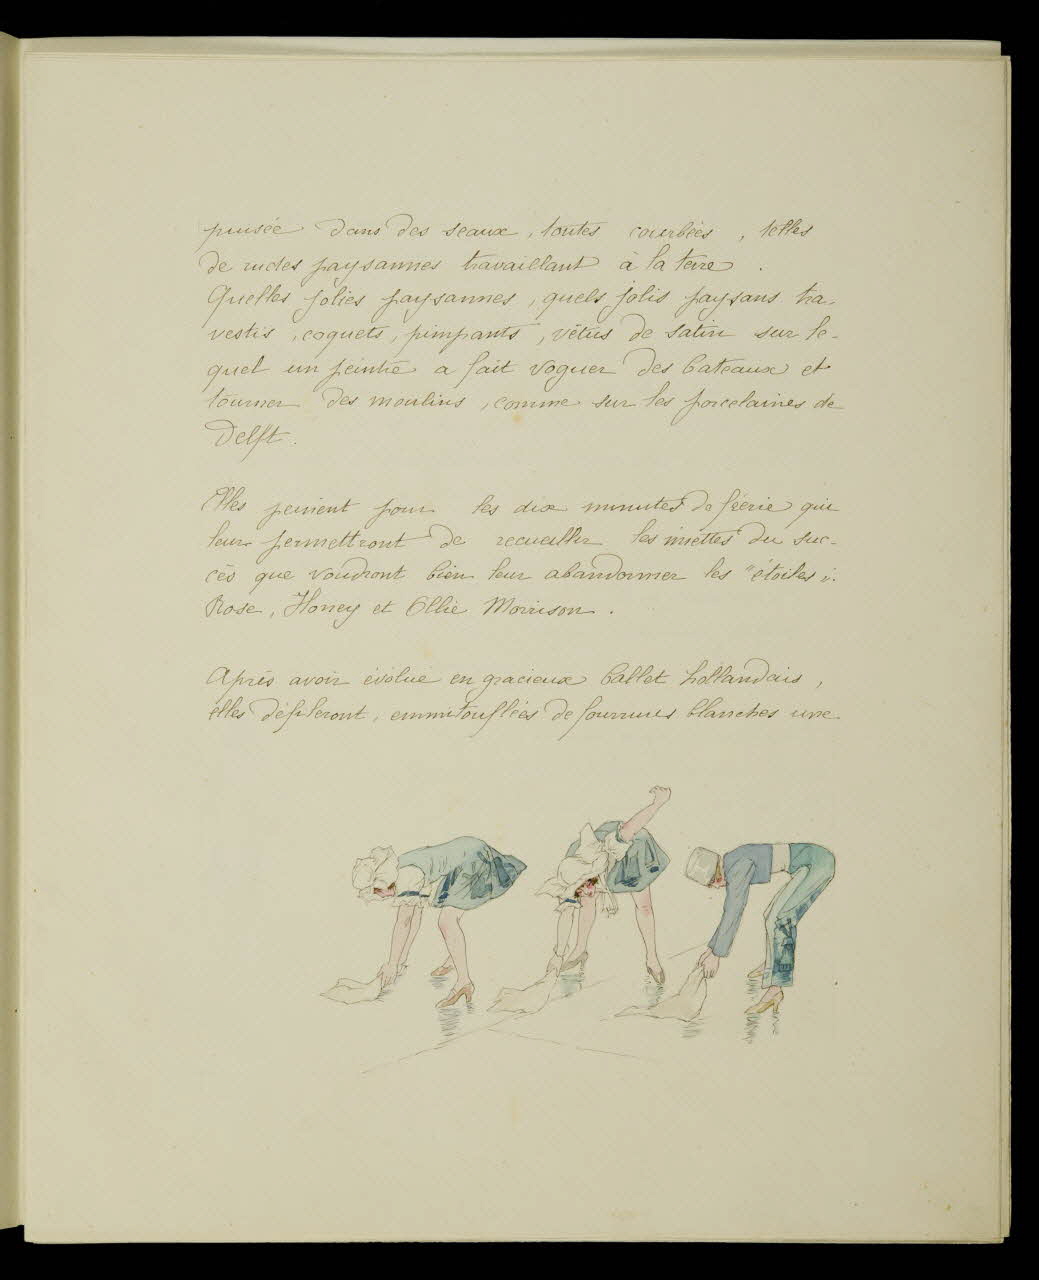 puisée dans des seaux, toutes courbées, telles
de rudes paysannes travaillant à la terre.
Quelles jolies paysannes, quels jolis paysans tra-
vestis, coquets, pimpants, vêtus de satin sur le-
quel un peintre a fait voguer des bateaux et
tourner des moulins, comme sur les porcelaines de
Delft.
Elles peinent pour les dix minutes de féerie qui
leur permettront de recueillir les miettes du suc-
cès que voudront bien leur abandonner les "étoiles":
Rose, Honey et Ollie Morrison.
Après avoir évolué en gracieux ballet hollandais,
elles défileront, emmitouflées de fourrures blanches une